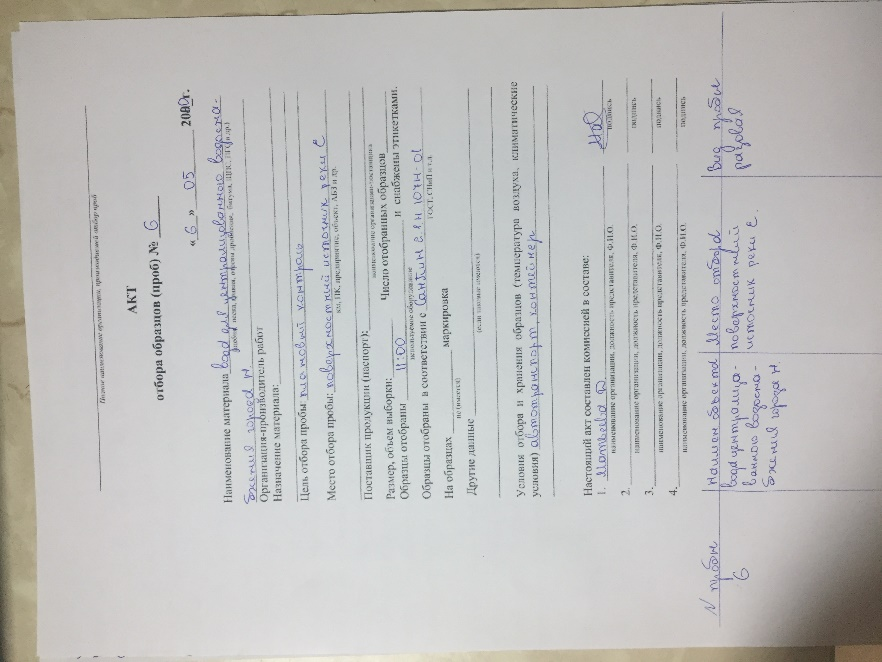 Полное наименование организации, производившей отбор проб
АКТ
отбора образцов (проб) № 6
« 6 » 05 2020г.
Наименование материала вода для централизованного водосна-
бжения город Н
Организация-производитель работ
Назначение материала:
Цель отбора пробы: плановый контроль
Место отбора пробы: поверхностный источник реки С
км, ПК, предприятие, объект, АБЗ и др.
Поставщик продукции (паспорт):
наименование организации-поставщика
Размер, объем выборки: Число отобранных образцов
Образцы отобраны 11:00 и снабжены этикетками.
используемое оборудование
Образцы отобраны в соответствии с
ГОСТ, СНиП и т.д.
На образцах маркировка
не (имеется)
Другие данные
(если таковые имеются)
Условия отбора и хранения образцов (температура воздуха, климатические
условия) автотранспорт, контейнер
Настоящий акт составлен комиссией в составе:
1. Матвеева
наименование организации, должность представителя, Ф.И.О. подпись
2.
наименование организации, должность представителя, Ф.И.О. подпись
3.
наименование организации, должность представителя, Ф.И.О. подпись
4.
наименование организации, должность представителя, Ф.И.О. подпись
N пробы Наимен объекта Место отбора Вид пробы
6 вода централизо- поверхностный разовая
ванного водосна- источник реки С.
бжения города Н.